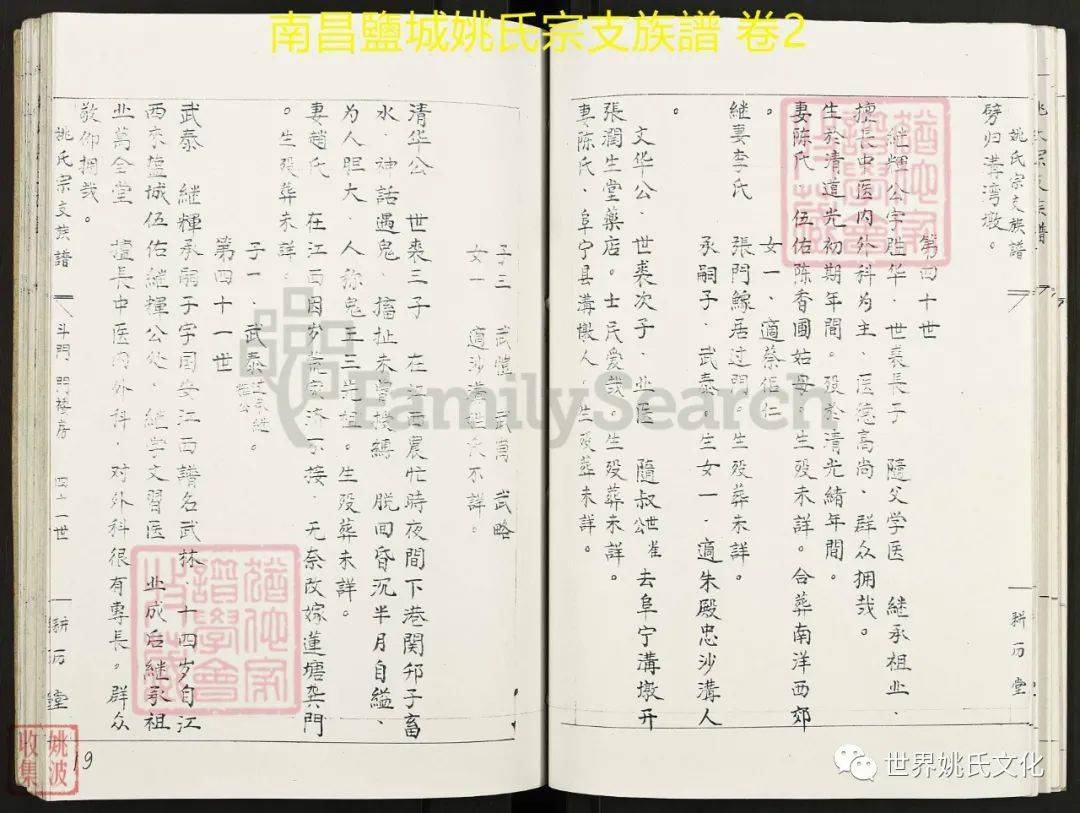 南昌鹽城姚氏宗支族譜 卷2
姚氏宗支族譜
劈归溝湾墩。
姚氏宗支族譜
耕历堂
第四十世
继輝公字胜华．世裘長子 隨父学医 继承祖业．
擅長中医内外科为主．医德高尚．群众拥哉。
生於清道光初期年間。殁於清光緒年間。
妻陈氏 伍佑陈香圃姑母。生殁未詳。合葬南洋西郊
。
女一．適蔡佢仁
继妻李氏 張門鰥居过門。生殁葬未詳。
承嗣子．武泰。生女一．適朱殿忠沙溝人
。
文华公．世裘次子．业医 隨叔公世雀去阜宁溝墩开
張潤生堂藥店。士民爱哉。生殁葬未詳。
妻陈氏．阜宁县溝墩人．生殁葬未詳。
子三 武愷 武 武略
女一 適沙溝 不詳。
清华公 世裘三子 在江西農忙時夜間下港関邜子畜
水．神話遇鬼．擂扯未曾授縛 脱回昏沉半月自縊、
为人胆大．人称鬼王三先祖。生殁葬未詳。
妻趙氏 在江西因岁荒家济不接．无奈改嫁蓮塘龚門
。生殁葬未詳。
子一．武泰过承继輝公。
第四十一世
武泰 继輝承嗣子字国安江西譜名武林．十四岁自江
西來盐城伍佑继輝公处．继学文習医 业成后继承祖
业萬合堂 擅長中医内外科．对外科很有專長。群众
敬仰拥哉。
姚氏宗支族譜
斗門 門楼房
四十一世
耕历堂
19
FamilySearch
姚波
收集
世界姚氏文化